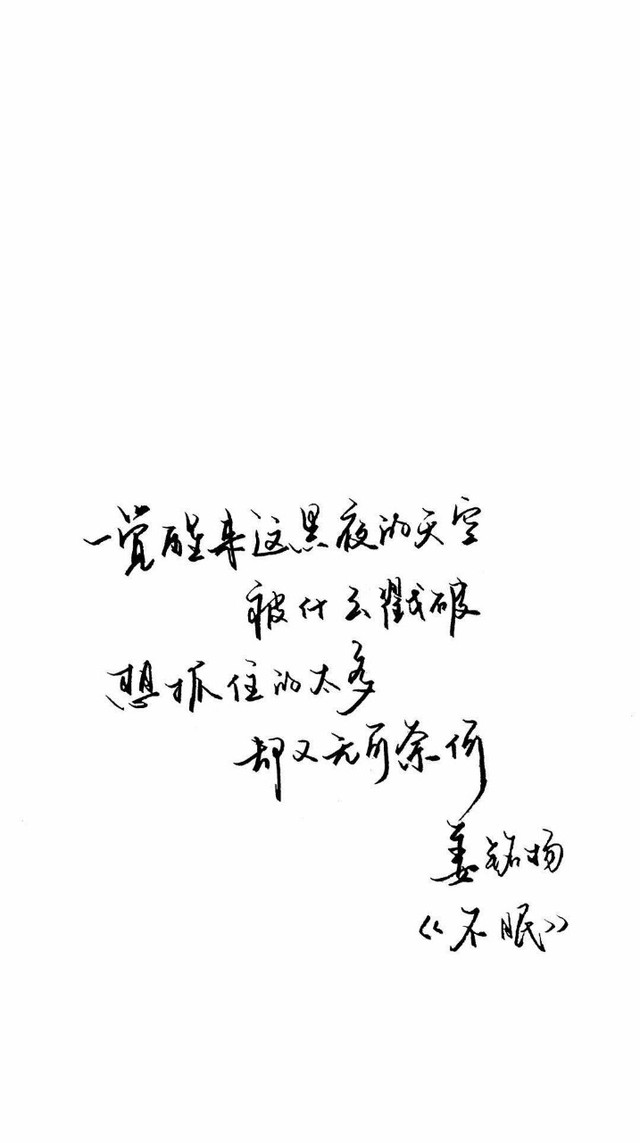 一觉醒来这黑夜的天空
被什么戳破
想抓住的太多
却又无可奈何
姜铭扬
《不眠》